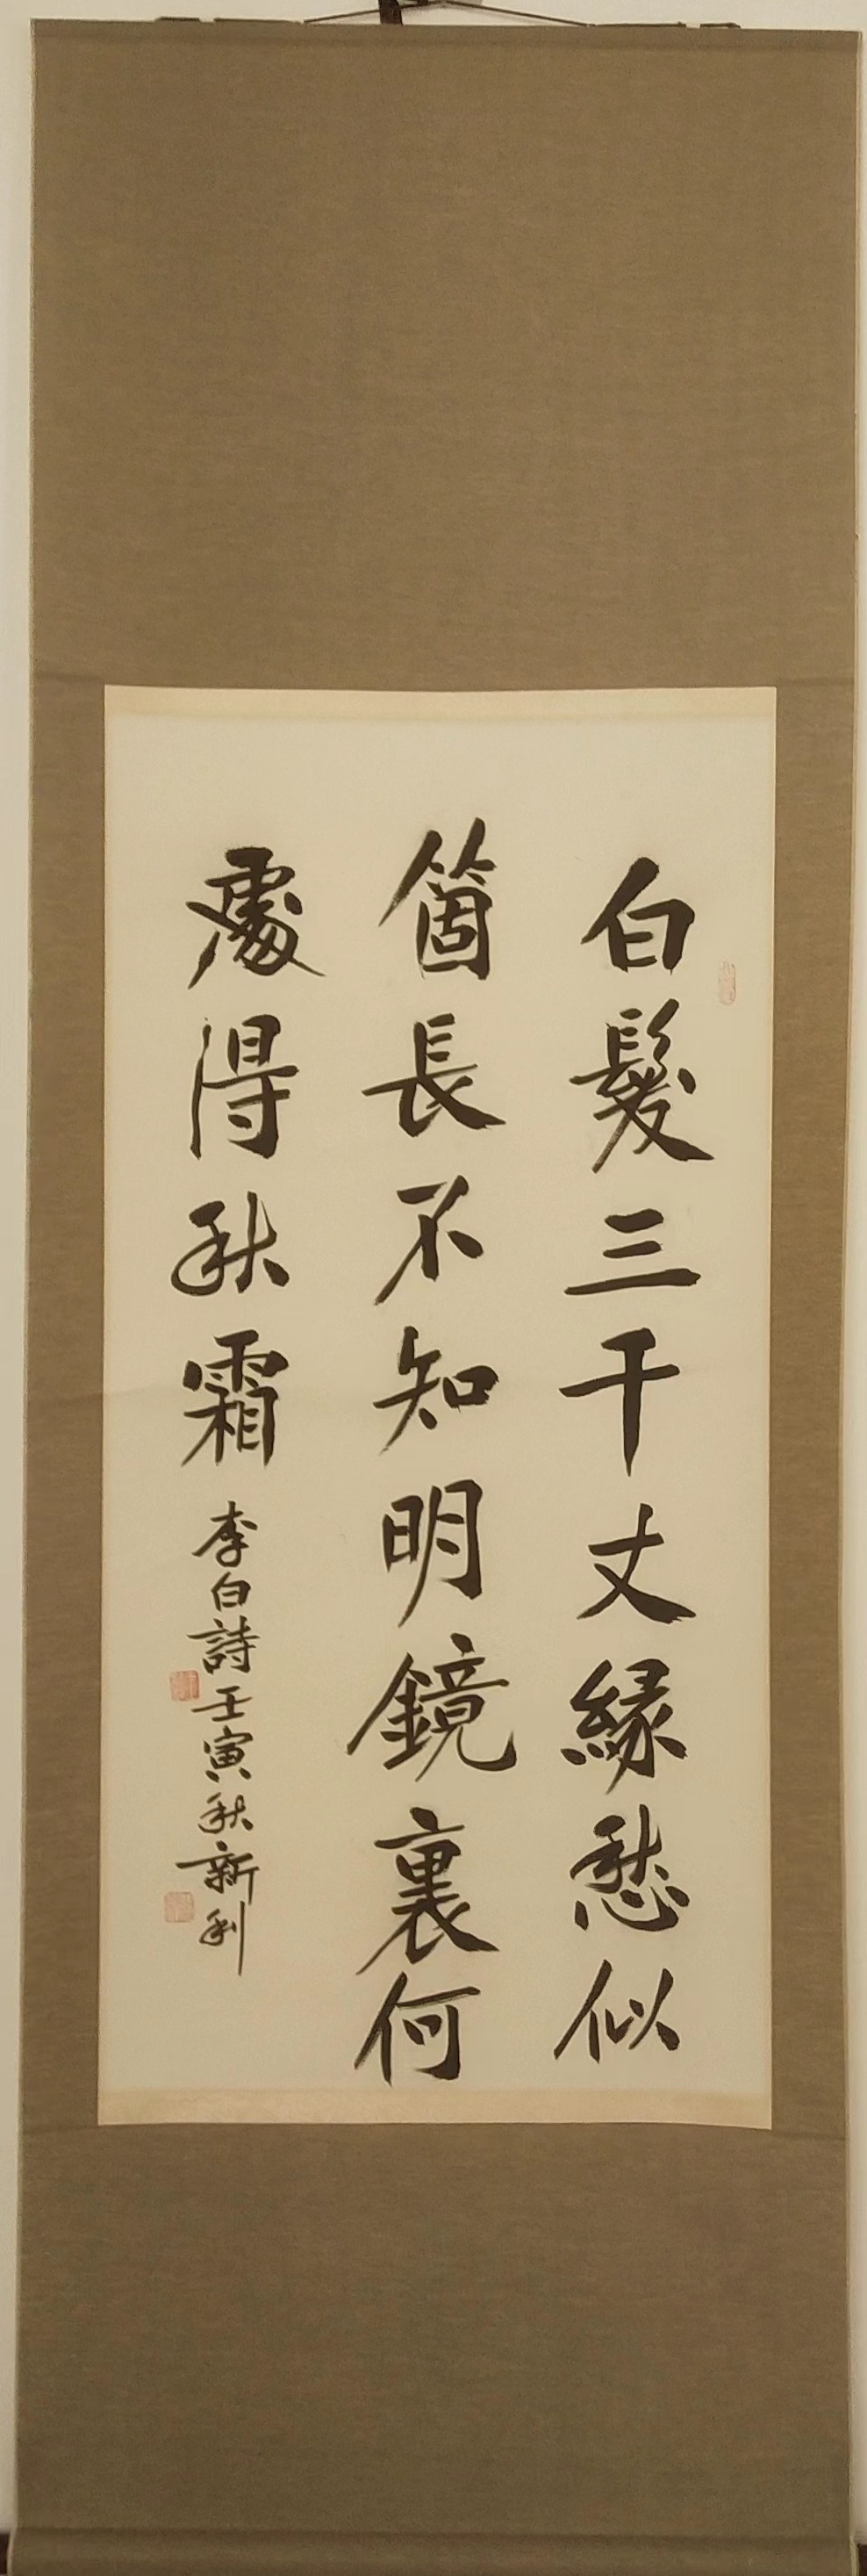 白髮三千丈緣愁似
箇長不知明鏡裏何
處得秋霜
李白詩壬寅秋新利